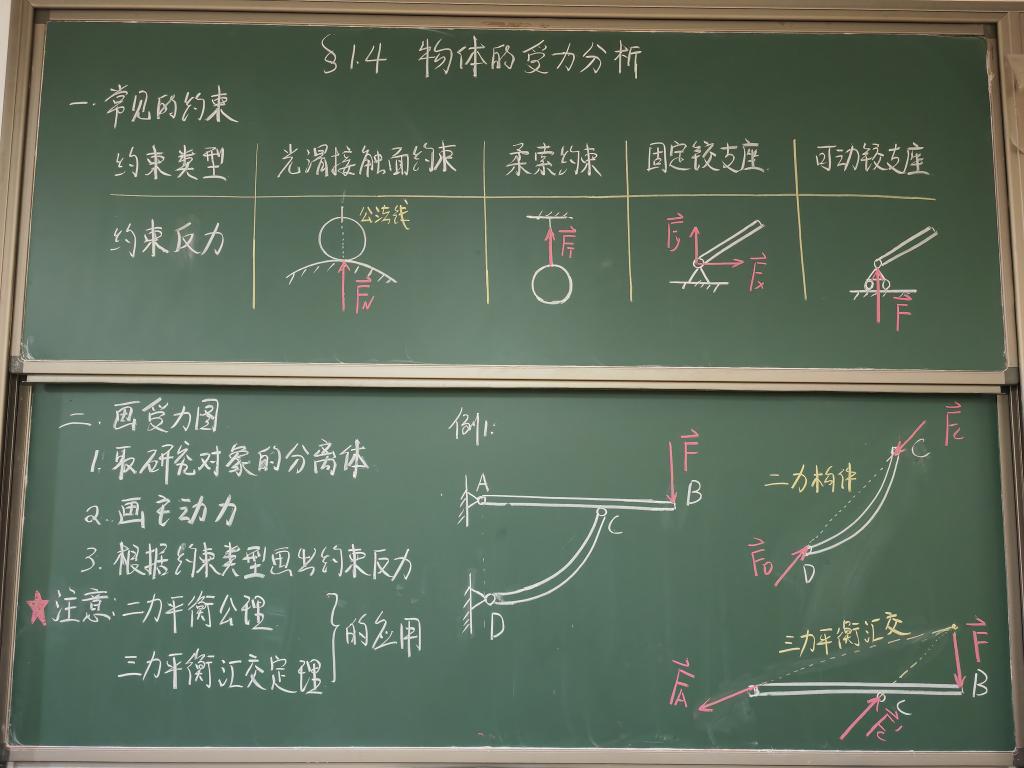 §1.4 物体的受力分析
一.常见的约束
约束类型 光滑接触面约束 柔索约束 固定铰支座 可动铰支座
约束反力
公法线
F_N
F_T
F_y
F_x
F
二.画受力图
1.取研究对象的分离体
2.画主动力
3.根据约束类型画出约束反力
★注意:二力平衡公理
三力平衡汇交定理
的应用
例1:
A
F
B
C
D
二力构件
F_C
C
F_D
D
三力平衡汇交
F_A
F
B
C
F_C'